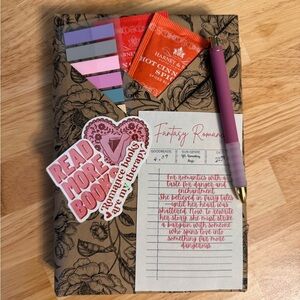 HARNEY & S
HOT CINN
SPI
READ
MORE
BOOKS
Romance books
are my therapy
Fantasy Roman
GOODREADS
SUB-GENRE
For romantics with a
taste for danger and
enchantment.
She believed in fairy tales
—until her heart was
shattered. Now, to rewrite
her story, she must strike
a bargain with someone
who spins love into
something far more
dangerous.